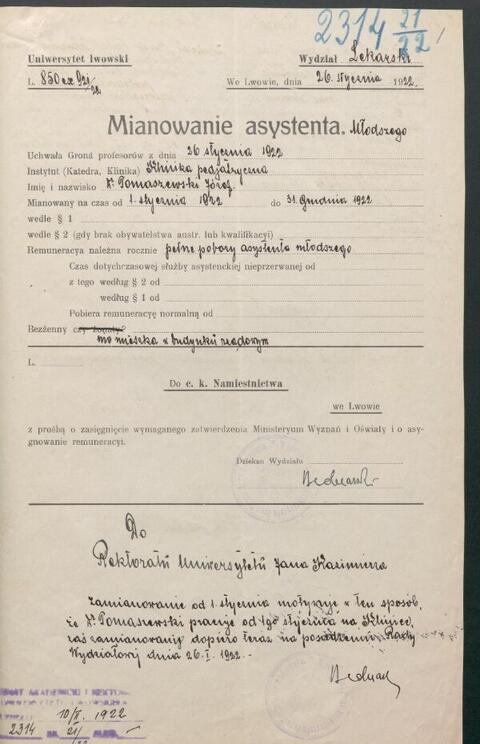 2314 21/22
Uniwersytet lwowski
Wydział Lekarski
L. 850 ex 921/22
We Lwowie, dnia 26. stycznia 1922.
Mianowanie asystenta. Młodszego
Uchwała Grona profesorów z dnia 26 stycznia 1922
Instytut (Katedra, Klinika) Klinika pedjatryczna
Imię i nazwisko Tomaszewski Józef
Mianowany na czas od 1. stycznia 1922 do 31. Grudnia 1922
wedle § 1
wedle § 2 (gdy brak obywatelstwa austr. lub kwalifikacyi)
Remuneracya należna rocznie pełne pobory asystenta młodszego
Czas dotychczasowej służby asystenckiej nieprzerwanej od
z tego według § 2 od
według § 1 od
Pobiera remuneracyę normalną od
Bezżenny czy żonaty?
nie mieszka w budynku rządowym
L.
Do c. k. Namiestnictwa
we Lwowie
z prośbą o zasięgnięcie wymaganego zatwierdzenia Ministeryum Wyznań i Oświaty i o asy-
gnowanie remuneracyi.
Dziekan Wydziału
Bednarski
Do
Rektoratu Uniwersytetu Jana Kazimierza
Zamianowanie od 1. stycznia motywuje w ten sposób,
że Tomaszewski pracuje od 1go stycznia na Klinice,
zaś zamianowany dopiero teraz na posiedzeniu Rady
Wydziałowej dnia 26. I. 1922.-
Bednarski
10/II. 1922
2314 21/22